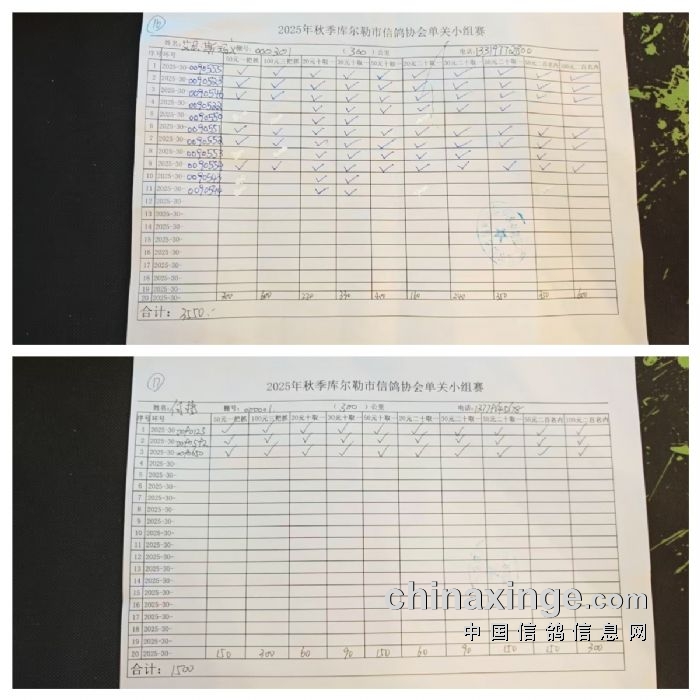 16
2025年秋季库尔勒市信鸽协会单关小组赛
姓名: 棚号: 000301 (300)公里 电话:
序号 环号 50元一把抓 100元三把抓 20元十取一 30元十取一 50元十取一 20元二十取一 30元二十取一 50元二十取一 50元二百名内 100元二百名内
1 2025-30- 0090555 ✓ ✓ ✓ ✓ ✓ ✓ ✓ ✓ ✓ ✓
2 2025-30- 0090523
3 2025-30- 0090546
4 2025-30- 0090522
5 2025-30- 0090550
6 2025-30- 0090551
7 2025-30- 0090552
8 2025-30- 0090553
9 2025-30- 0090554
10 2025-30-
11 2025-30-
12 2025-30-
13 2025-30-
14 2025-30-
15 2025-30-
16 2025-30-
17 2025-30-
18 2025-30-
19 2025-30-
20 2025-30- 600 220 330 400 160 240 350 350 600
合计: 3550.-
17
2025年秋季库尔勒市信鸽协会单关小组赛
姓名: 棚号: (300)公里 电话:
序号 环号 50元一把抓 100元三把抓 20元十取一 30元十取一 50元十取一 20元二十取一 30元二十取一 50元二十取一 50元二百名内 100元二百名内
1 2025-30- 0090123 ✓ ✓ ✓ ✓ ✓ ✓ ✓ ✓ ✓ ✓
2 2025-30- 0090592 ✓ ✓ ✓ ✓ ✓ ✓ ✓ ✓ ✓ ✓
3 2025-30- 0090650 ✓ ✓ ✓ ✓ ✓ ✓ ✓ ✓ ✓ ✓
4 2025-30-
5 2025-30-
6 2025-30-
7 2025-30-
8 2025-30-
9 2025-30-
10 2025-30-
11 2025-30-
12 2025-30-
13 2025-30-
14 2025-30-
15 2025-30-
16 2025-30-
17 2025-30-
18 2025-30-
19 2025-30-
20 2025-30- 150 300 60 90 150 60 90 150 150 300
合计: 1500
chinaxinge.com
中国信鸽信息网